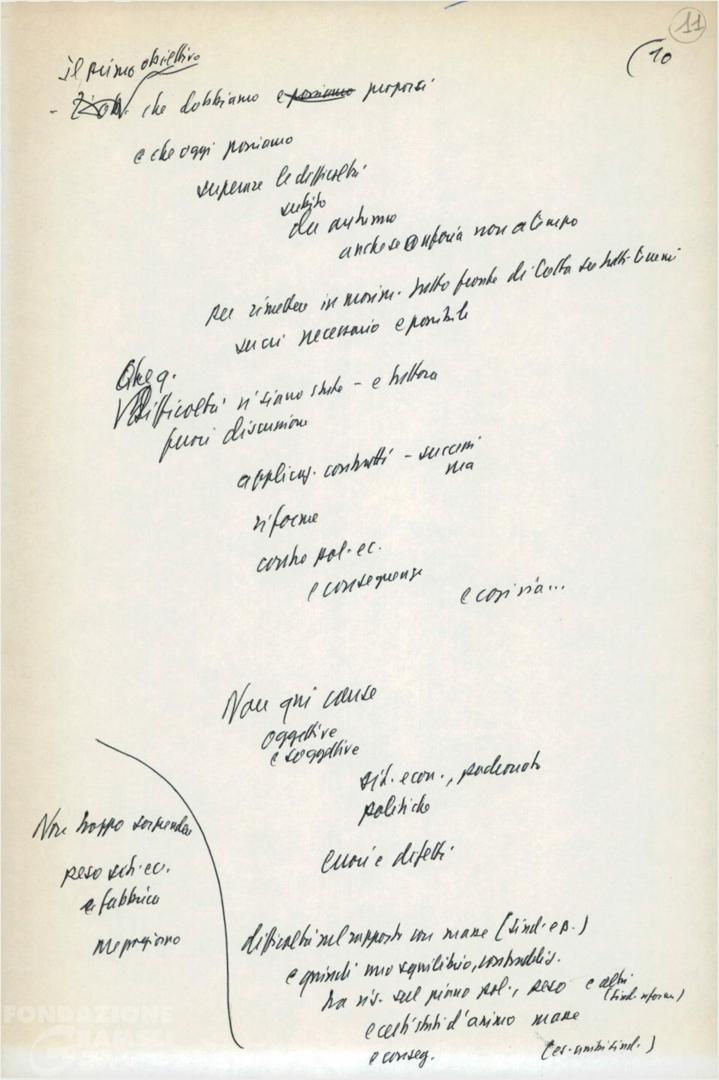 11
(10
il primo obiettivo
- che dobbiamo e possiamo proporci
e che oggi possiamo
superare le difficoltà
subito
da autunno
anche se non a tempo
per rimettere in movim. tutto fronte di lotta su tutti temi
su cui necessario e possibile
Che q.
difficoltà vi siano state - e tuttora
fuori discussione
applicaz. contratti - successi
ma
riforme
contro pol. ec.
e conseguenze
e così via...
Non qui cause
oggettive
e soggettive
sit. econ., padronato
politiche
errori e difetti
Non troppo sorprender
peso sit. ec.
e fabbrica
Mezzogiorno
difficoltà nel rapporto con masse (sind. e p.)
e quindi uno squilibrio, contraddiz.
tra ris. sul piano pol., peso e altri
(sind. riforme)
e certi stati d'animo masse
e conseg.
(es. unità sind.)
FONDAZIONE
GRAMSCI